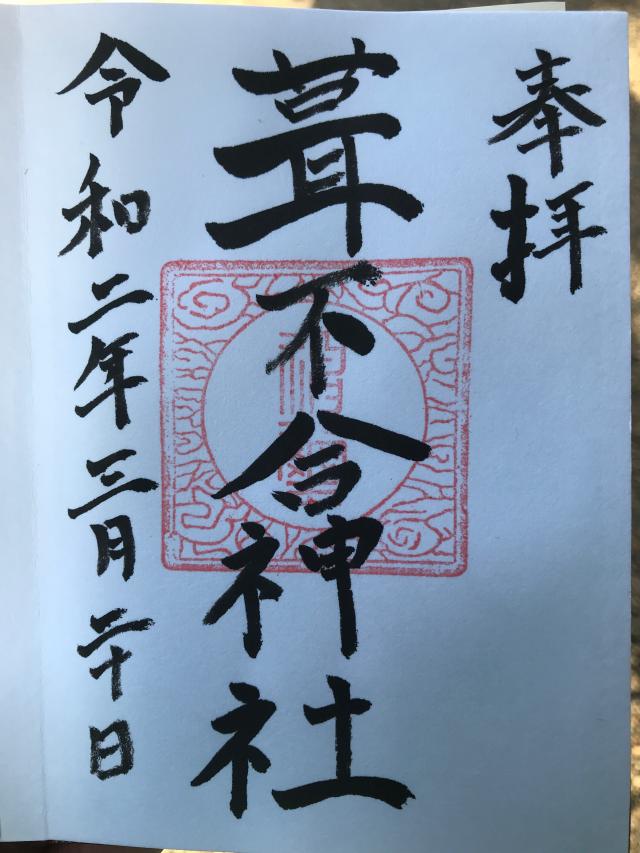 奉拝
葺不合神社
令和二年三月二十日